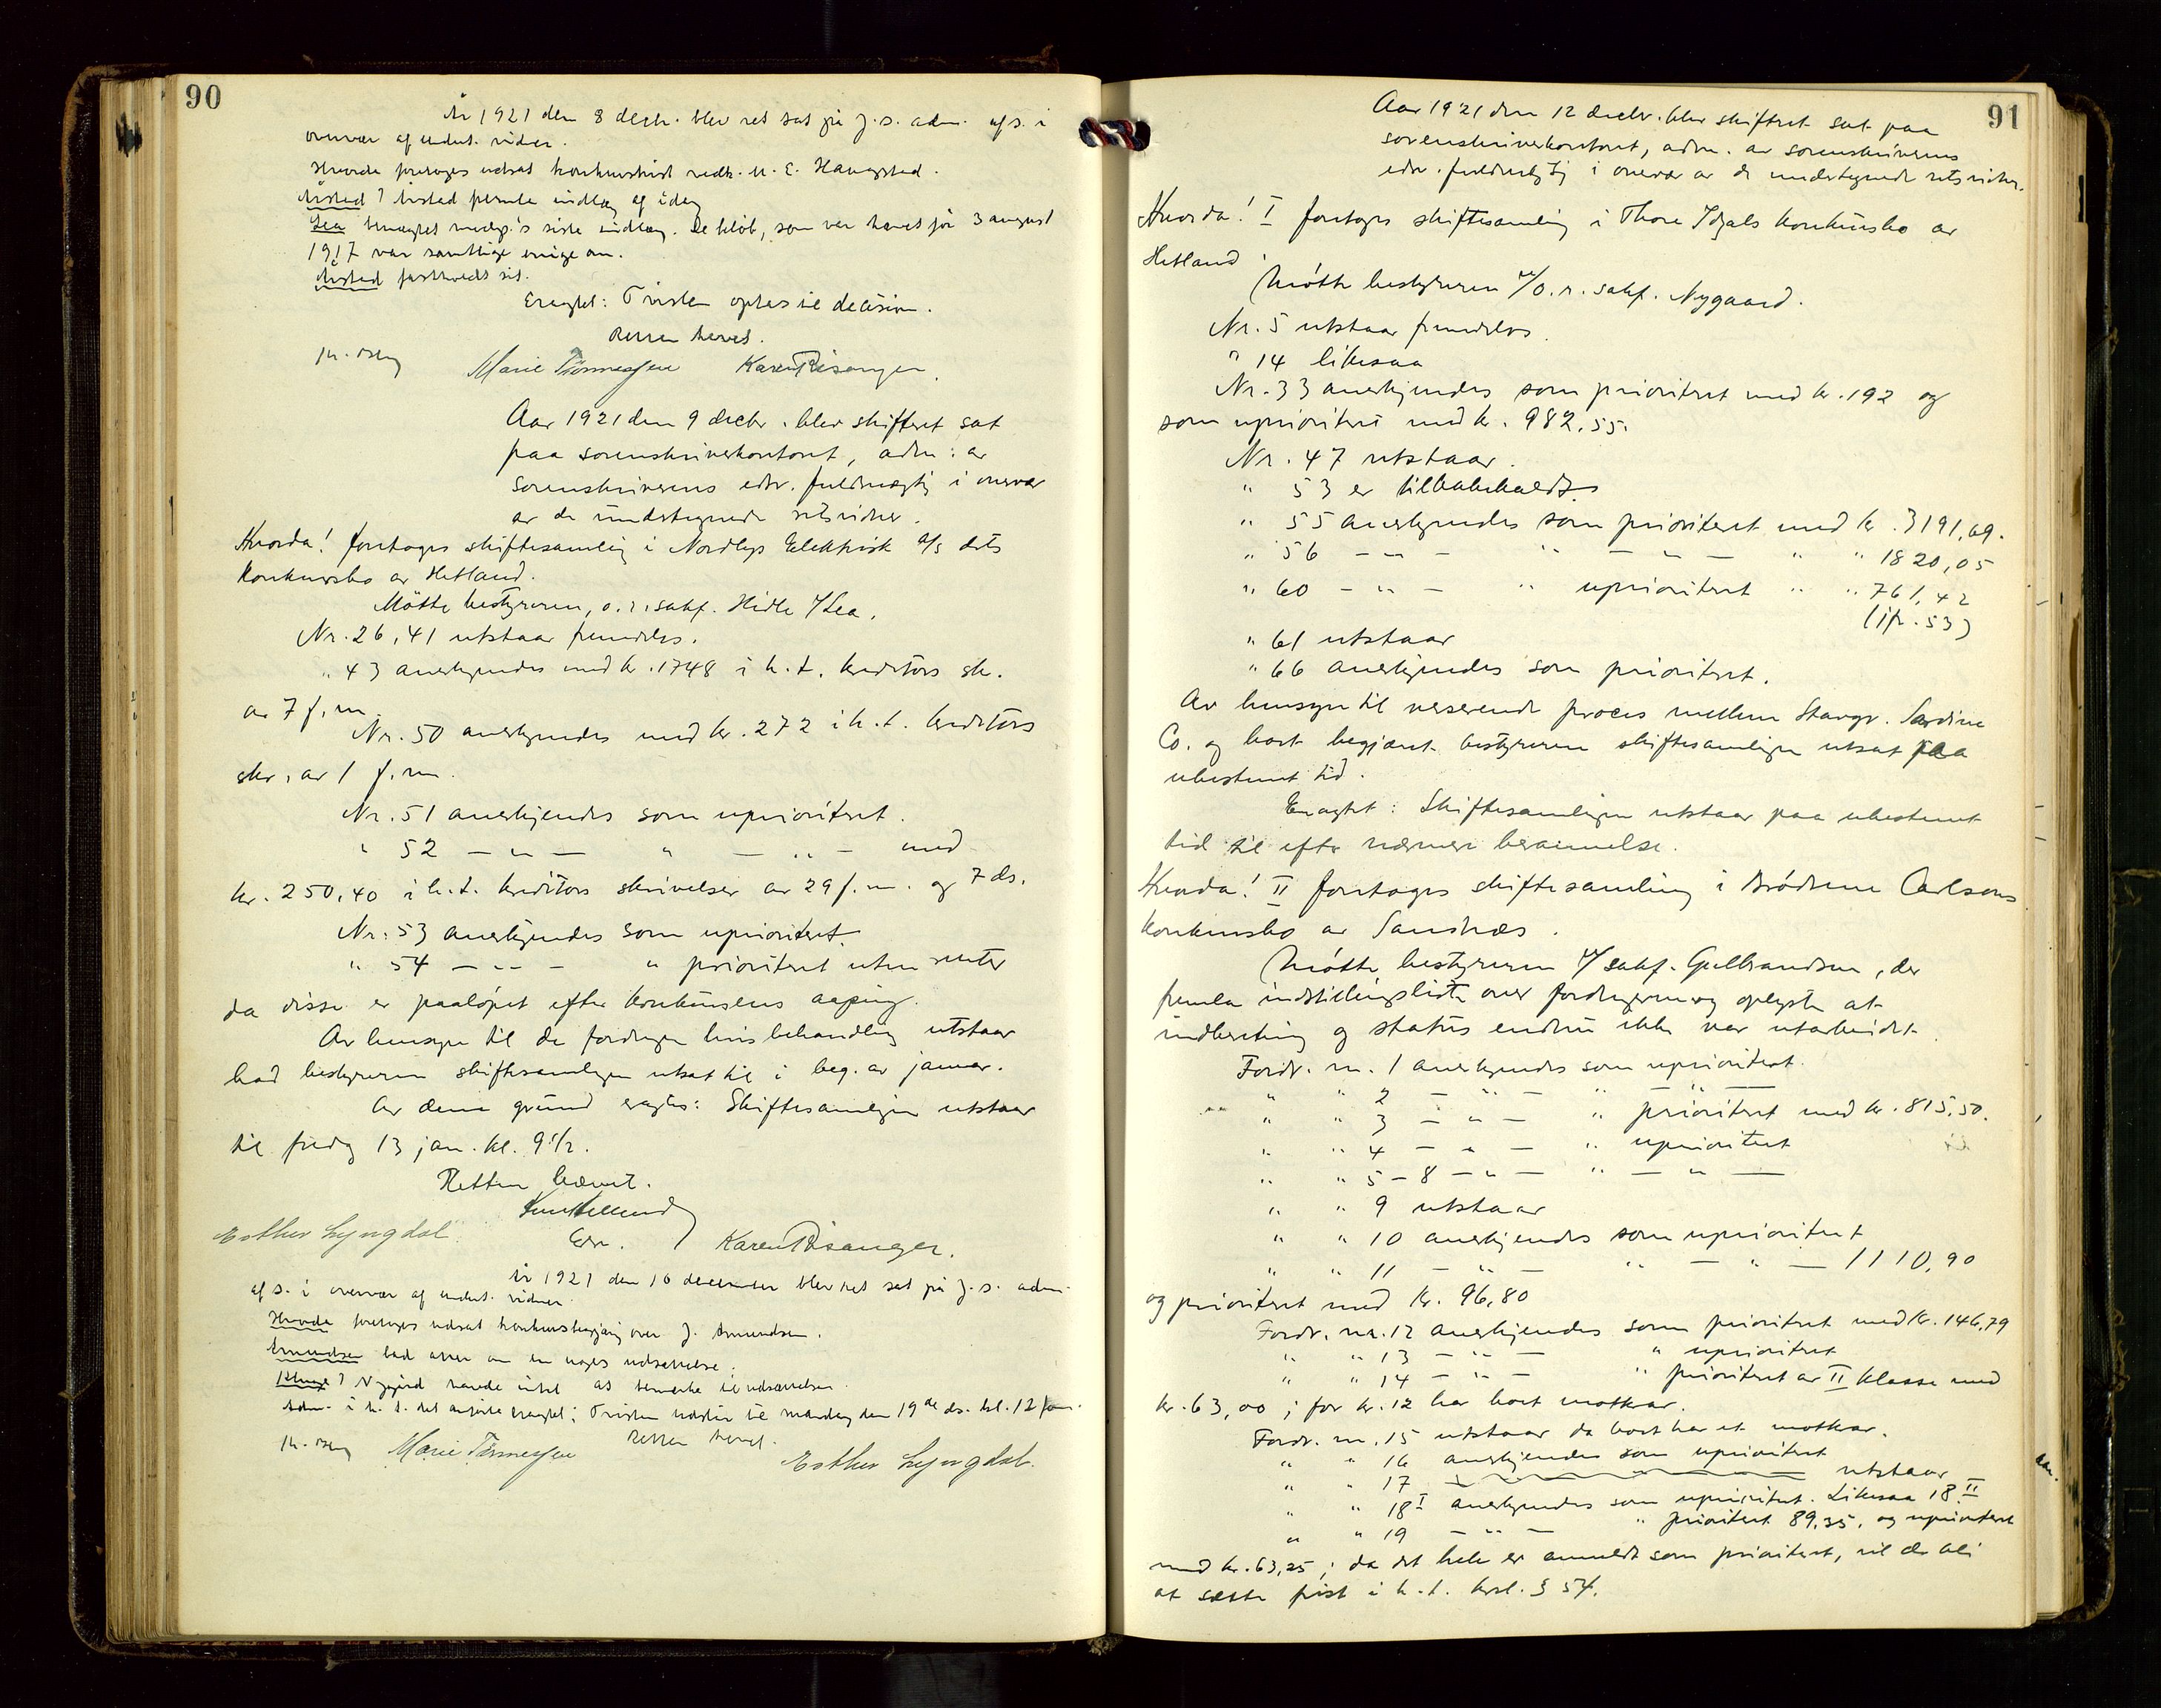 90
År 1921 den 8 decbr. blev ret sat på J. s. adm. af s. i
overvær af undert. vidner.
Hvorda foretoges udsat konkurstvist vedk. M. E. Haugstad.
Årstad? Årstad fremla indlæg af idag
Lea benægtet modp's siste indlæg. De beløb, som var hævet før 3 august
1917 var samtlige enige om.
Årstad fastholdt sit.
Eragtet: Tvisten optas til decision.
Retten hævet.
Marie Tönnessen Karen Risanger.
Aar 1921 den 9 decbr. blev skifteret sat
paa sorenskriverkontoret, adm. av
sorenskriverens edsv. fuldmægtig i overvær
av de undertegnede retsvidner.
Hvorda! foretoges skiftesamling i Nordlys Elektrisk A/S dets
konkursbo av Hetland.
Møtte bestyreren, o.r.sakf. Hidle v/ Lea.
Nr. 26, 41 utstaar fremdeles.
" 43 anerkjendes med kr. 1748 i h. t. kreditors skr.
av 7 f.m.
Nr. 50 anerkjendes med kr. 272 i h. t. kreditors
skr. av 1 f.m.
Nr. 51 anerkjendes som uprioritert.
" 52 — " — " — " — med
kr. 250,40 i h. t. kreditors skrivelser av 29 f.m. og 7 ds.
Nr. 53 anerkjendes som uprioritert.
" 54 — " — " prioritert uten renter
da disse er paaløpet efter konkursens aapning.
Av hensyn til de fordringer hvis behandling utstaar
bad bestyreren skiftesamlingen utsat til i beg. av januar.
Av denne grund eragtes: Skiftesamlingen utstaar
til fredag 13 jan. kl. 9 1/2.
Retten hævet.
Esther Lyngdal. Edsv. Karen Risanger.
År 1921 den 16 december blev ret sat på J. s. adm.
af s. i overvær af undert. vidner.
Hvorda foretoges udsat konkursbegjæring over J. Amundsen.
Amundsen bad atter om en uges udsættelse.
Nygård havde intet at bemerke til udsættelsen.
Adm. i h. t. det anførte eragtet: Tvisten udstår til mandag den 19de ds. kl. 12 form.
Retten hævet.
Marie Tönnessen Esther Lyngdal.
91
Aar 1921 den 12 decbr. blev skifteret sat paa
sorenskriverkontoret, adm. av sorenskriverens
edsv. fuldmægtig i overvær av de undertegnede retsvidner.
Hvorda! I foretoges skiftesamling i Thore Idsals konkursbo av
Hetland.
Møtte bestyreren v/ o.r.sakf. Nygaard.
Nr. 5 utstaar fremdeles.
" 14 likesaa
Nr. 33 anerkjendes som prioritert med kr. 192 og
som uprioritert med kr. 982.55.
Nr. 47 utstaar.
" 53 er tilbakekaldt
" 55 anerkjendes som prioritert med kr. 3191,69.
" 56 — " — " — " — " " 1820,05
" 60 — " — " uprioritert " " 761,42
(jfr. 53)
" 61 utstaar
" 66 anerkjendes som prioritert.
Av hensyn til verserende proces mellem Stavgr. Sardine
Co. og boet begjæret bestyreren skiftesamlingen utsat paa
ubestemt tid.
Eragtet: Skiftesamlingen utstaar paa ubestemt
tid til efter nærmere berammelse.
Hvorda! II foretoges skiftesamling i Brødrene Carlsens
konkursbo av Sandnæs.
Møtte bestyreren v/ sakf. Gulbrandsen, der
fremla indstillingsliste over fordringerne og oplyste at
indberetning og status endnu ikke var utarbeidet.
Fordr. nr. 1 anerkjendes som uprioritert.
" " 2 — " — " — " —
" " 3 — " — " prioritert med kr. 815.50.
" " 4 — " — " uprioritert
" " 5 – 8 — " — " — " —
" " 9 utstaar
" " 10 anerkjendes som uprioritert
" " 11 — " — " — " — 1110,90
og prioritert med kr. 96,80
Fordr. nr. 12 anerkjendes som prioritert med kr. 146,79
" " 13 — " — " uprioritert
" " 14 — " — " prioritert av II klasse med
kr. 63,00; for kr. 12 har boet motkrav.
Fordr. nr. 15 utstaar da boet har et motkrav.
" " 16 anerkjendes som uprioritert
" " 17 utstaar
" " 18 I anerkjendes som uprioritert. Likesaa 18 II
" " 19 — " — " prioritert 89,35, og uprioritert
med kr. 63,25; da det hele er anmeldt som prioritert, vil der bli
at sætte frist i h. t. krsl. § 54.